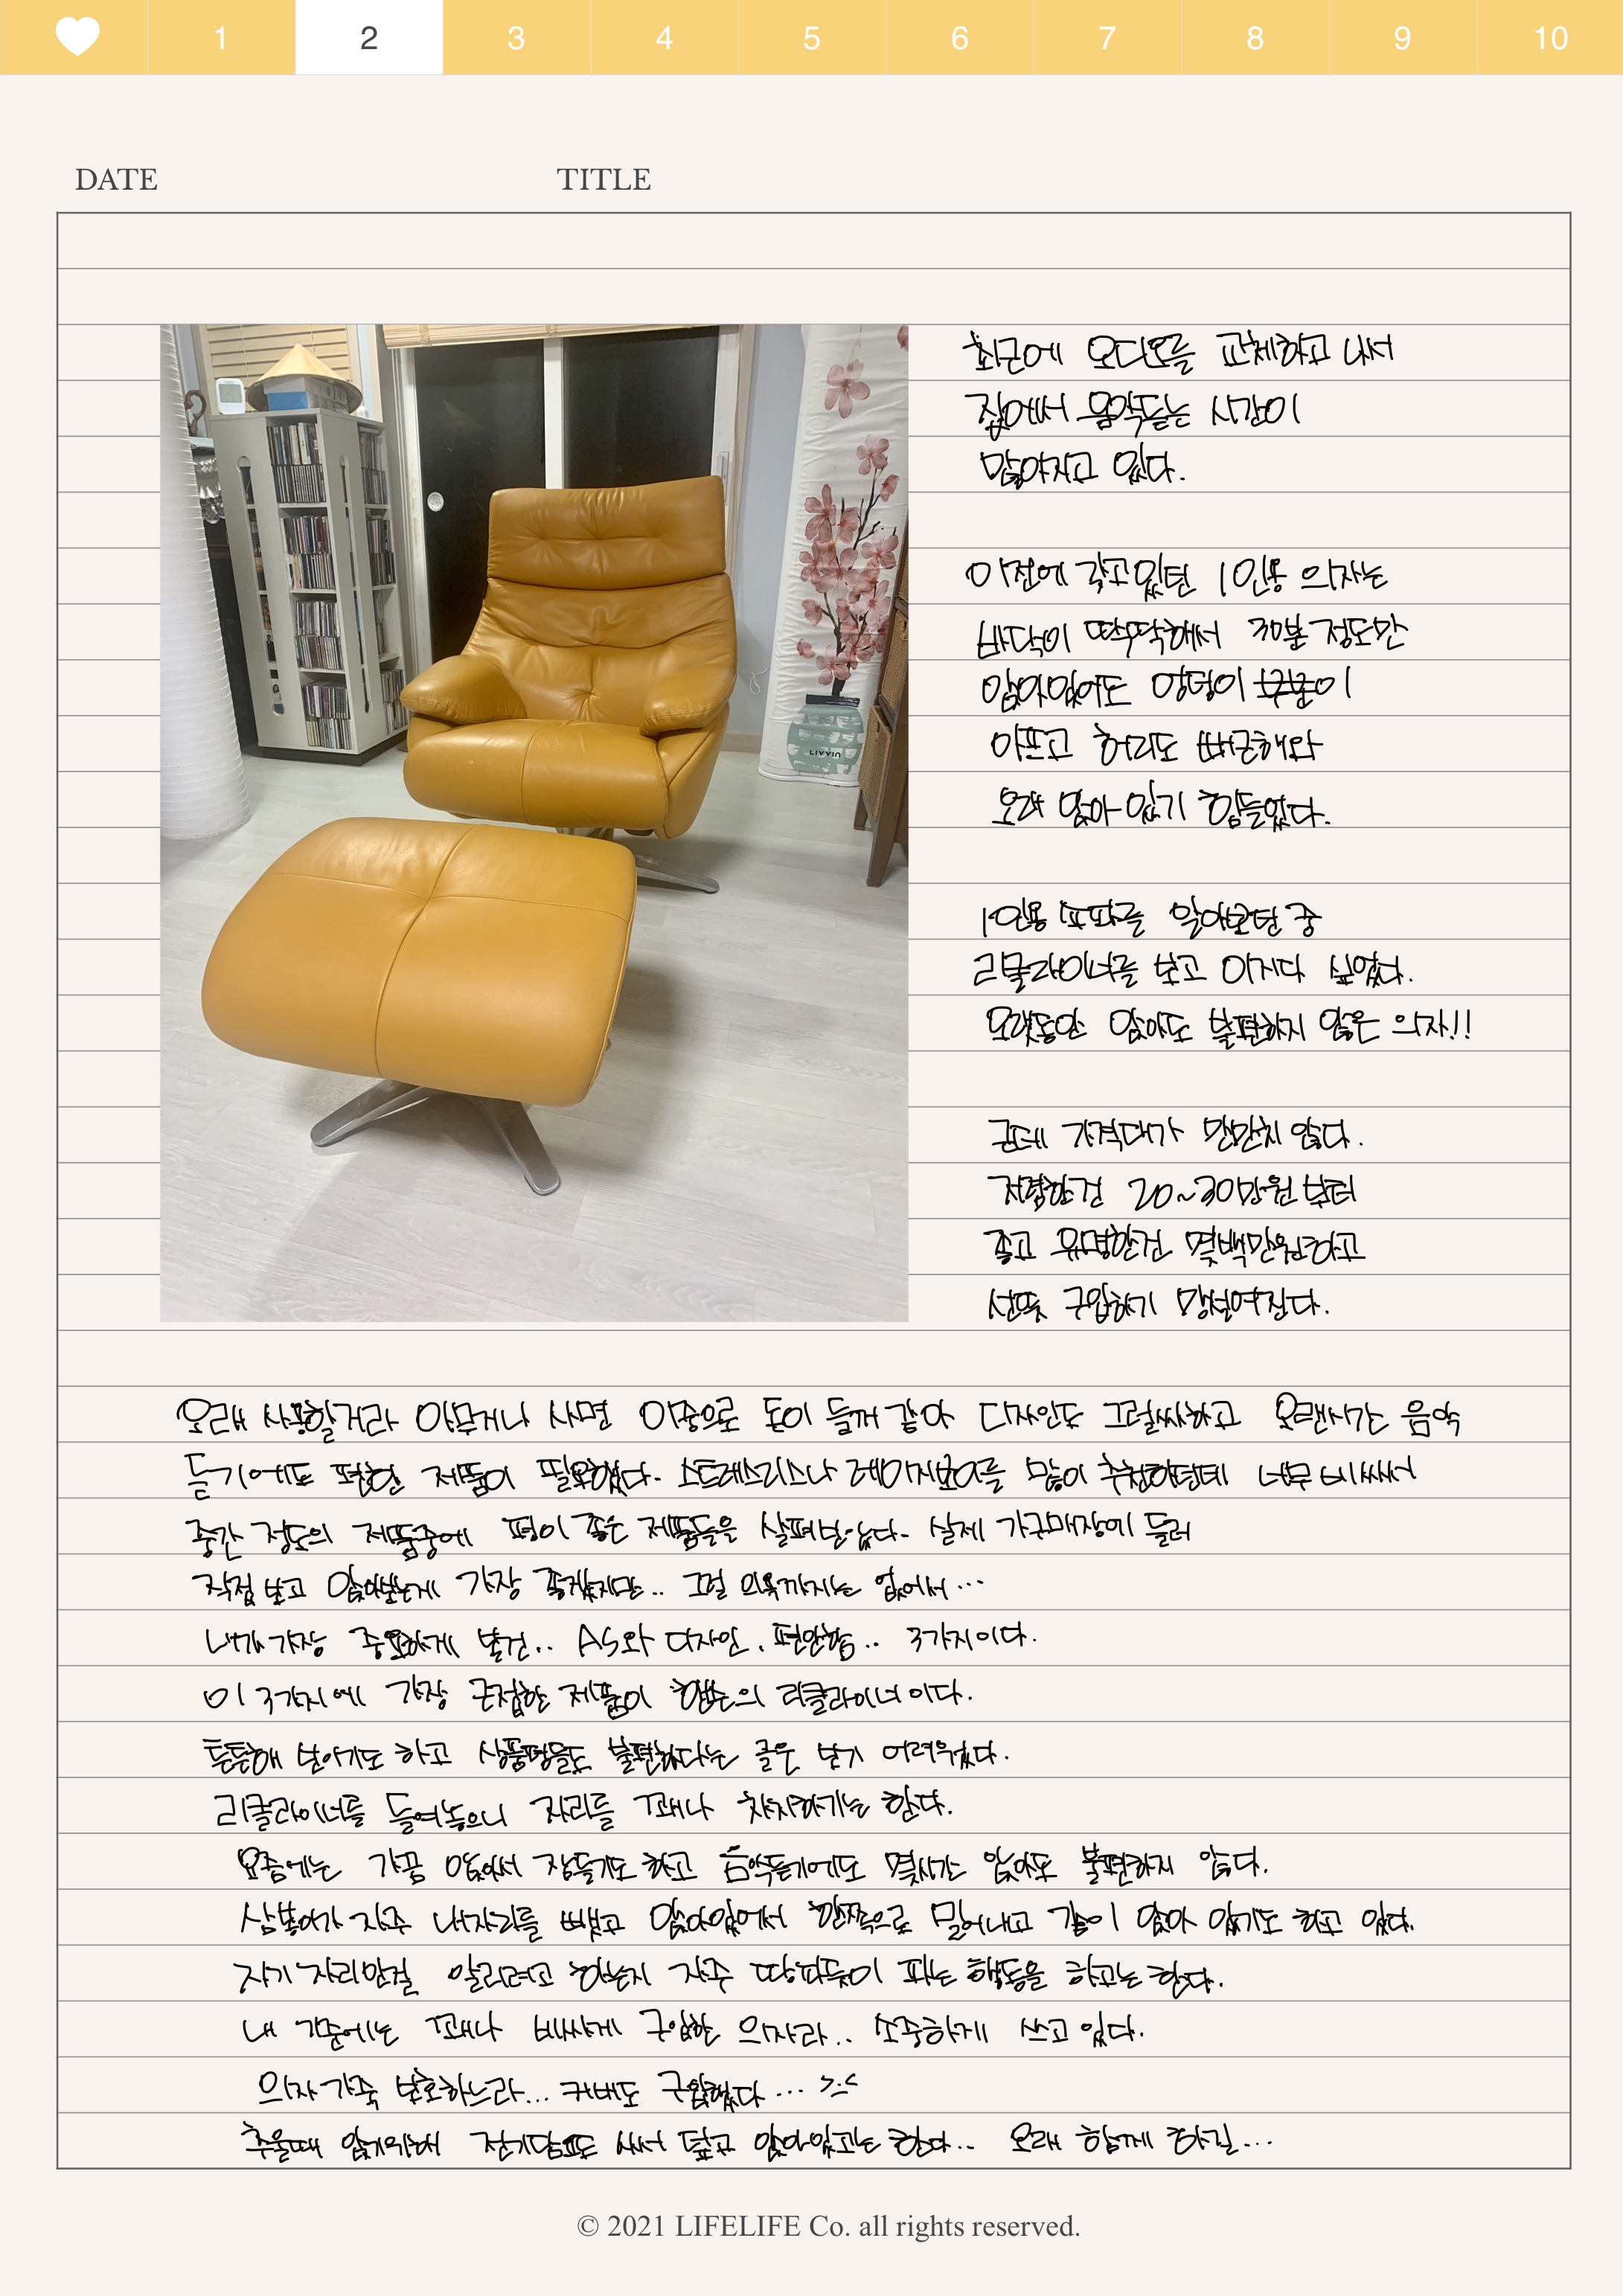 1 2 3 4 5 6 7 8 9 10
DATE TITLE
최근에 오디오를 교체하고 나서
집에서 음악듣는 시간이
많아지고 있다.
이전에 갖고있던 1인용 의자는
바닥이 딱딱해서 30분 정도만
앉아있어도 엉덩이 부분이
아프고 허리도 뻐근해와
오래 앉아 있기 힘들었다.
1인용 쇼파를 알아보던 중
리클라이너를 보고 이거다 싶었다.
오랫동안 앉아도 불편하지 않은 의자!!
근데 가격대가 만만치 않다.
저렴한건 20~30만원 부터
좋고 유명한건 몇백만원하고
선뜻 구입하기 망설여진다.
LIVVIU
오래 사용할거라 아무거나 사면 이중으로 돈이 들꺼 같아 디자인도 그럴싸하고 오랜시간 음악
듣기에도 편한 제품이 필요했다. 스트레스리스나 레이지보이를 많이 추천하던데 너무 비싸서
중간 정도의 제품중에 평이 좋은 제품들을 살펴보았다. 실제 가구매장에 들러
직접 보고 앉아보는게 가장 좋겠지만.. 그럴 의욕까지는 없어서...
내가 가장 중요하게 본건.. AS와 디자인, 편안함.. 3가지이다.
이 3가지에 가장 근접한 제품이 햄튼의 리클라이너 이다.
튼튼해 보이기도 하고 상품평들도 불편하다는 글은 보기 어려웠다.
리클라이너를 들여놓으니 자리를 꽤나 차지하기는 한다.
요즘에는 가끔 앉아서 잠들기도 하고 음악듣기에도 몇시간 앉아도 불편하지 않다.
삼봉이가 자주 내자리를 뺏고 앉아있어서 한쪽으로 밀어내고 같이 앉아 있기도 하고 있다.
자기 자리인걸 알리려고 하는지 자주 땅파듯이 파는 행동을 하고는 한다.
내 기준에는 꽤나 비싸게 구입한 의자라.. 소중하게 쓰고 있다.
의자 가죽 보호하느라... 커버도 구입했다... >.<
추울때 앉기위해 전기담요도 사서 덮고 앉아있고는 한다.. 오래 함께 하길...
© 2021 LIFELIFE Co. all rights reserved.